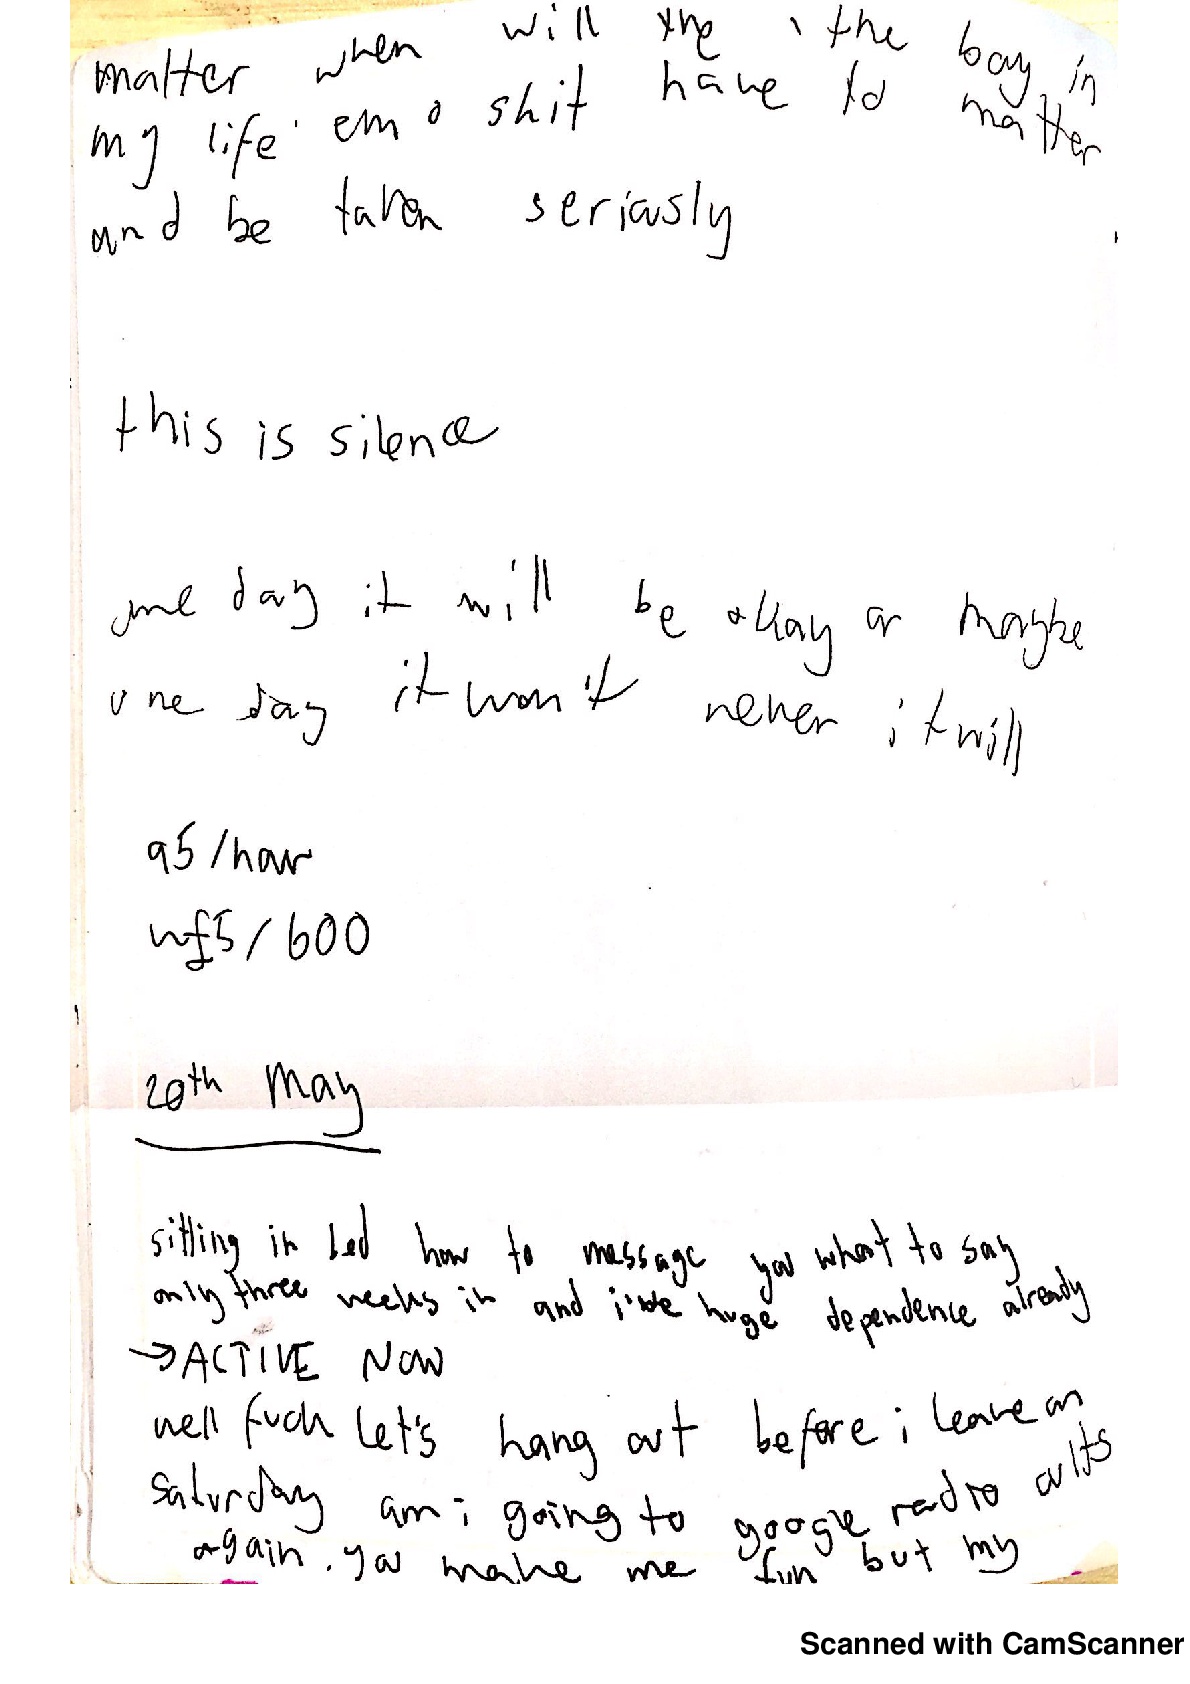 matter when will the , the boy in
my life' emo shit have to matter
and be taken seriously
this is silence
one day it will be okay or maybe
one day it won't never it will
95/hour
wf5/600
20th May
sitting in bed how to message you what to say
only three weeks in and i've huge dependence already
→ACTIVE NOW
well fuck let's hang out before i leave on
saturday am i going to google radio cults
again. you make me fun but my
Scanned with CamScanner